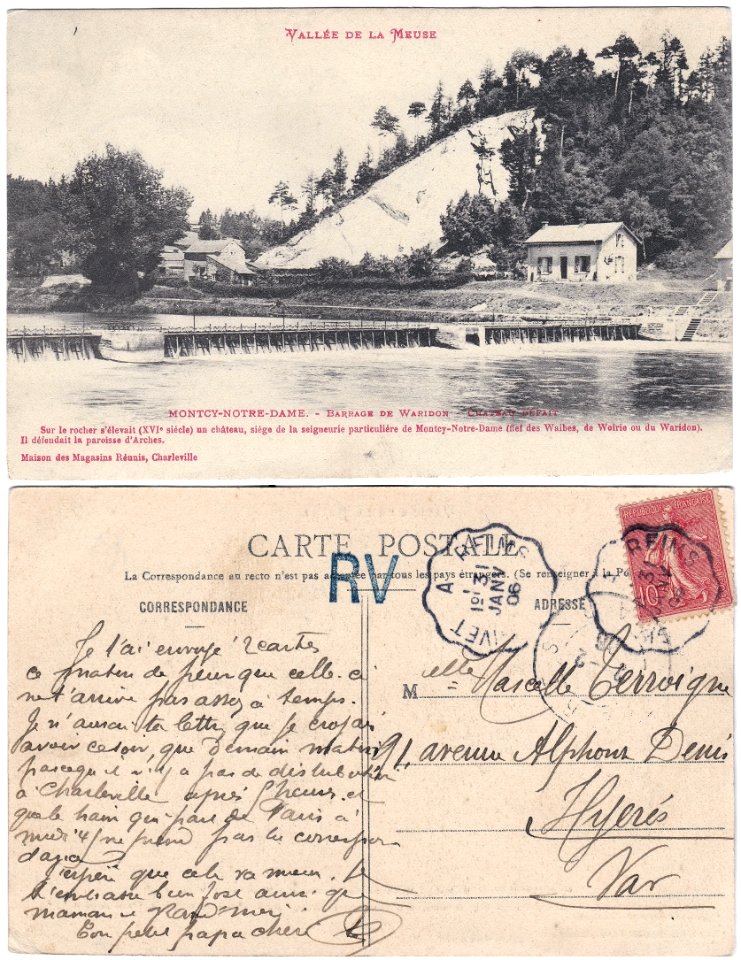 VALLÉE DE LA MEUSE
MONTCY-NOTRE-DAME. - BARRAGE DE WARIDON - CHATEAU DEFAIT
Sur le rocher s'élevait (XVIe siècle) un château, siège de la seigneurie particulière de Montcy-Notre-Dame (fief des Waibes, de Woirie ou du Waridon).
Il défendait la paroisse d'Arches.
Maison des Magasins Réunis, Charleville
CARTE POSTALE
La Correspondance au recto n'est pas adoptée par tous les pays étrangers. (Se renseigner à la P
RV
CORRESPONDANCE
ADRESSE
A REIMS
31
JANV
06
GIVET
REPUBLIQUE FRANÇAISE
10
REIMS
31
Je t'ai envoyé 2 cartes
ce matin de peur que celle-ci
ne t'arrive pas assez à temps.
Je n'aurai ta lettre que je croyais
avoir ce soir, que demain matin
parcequ'il n'y a pas de distribution
à Charleville après heures et
que le train qui part de Paris à
midi 4 ne prend pas la correspon
dance
J'espère que cela va mieux. Je
t'embrasse bien fort ainsi que
maman et Grand'mère
Ton petit papa chéri
Melle Marcelle Terroigne
91, avenue Alphonse Denis
Hyères
Var